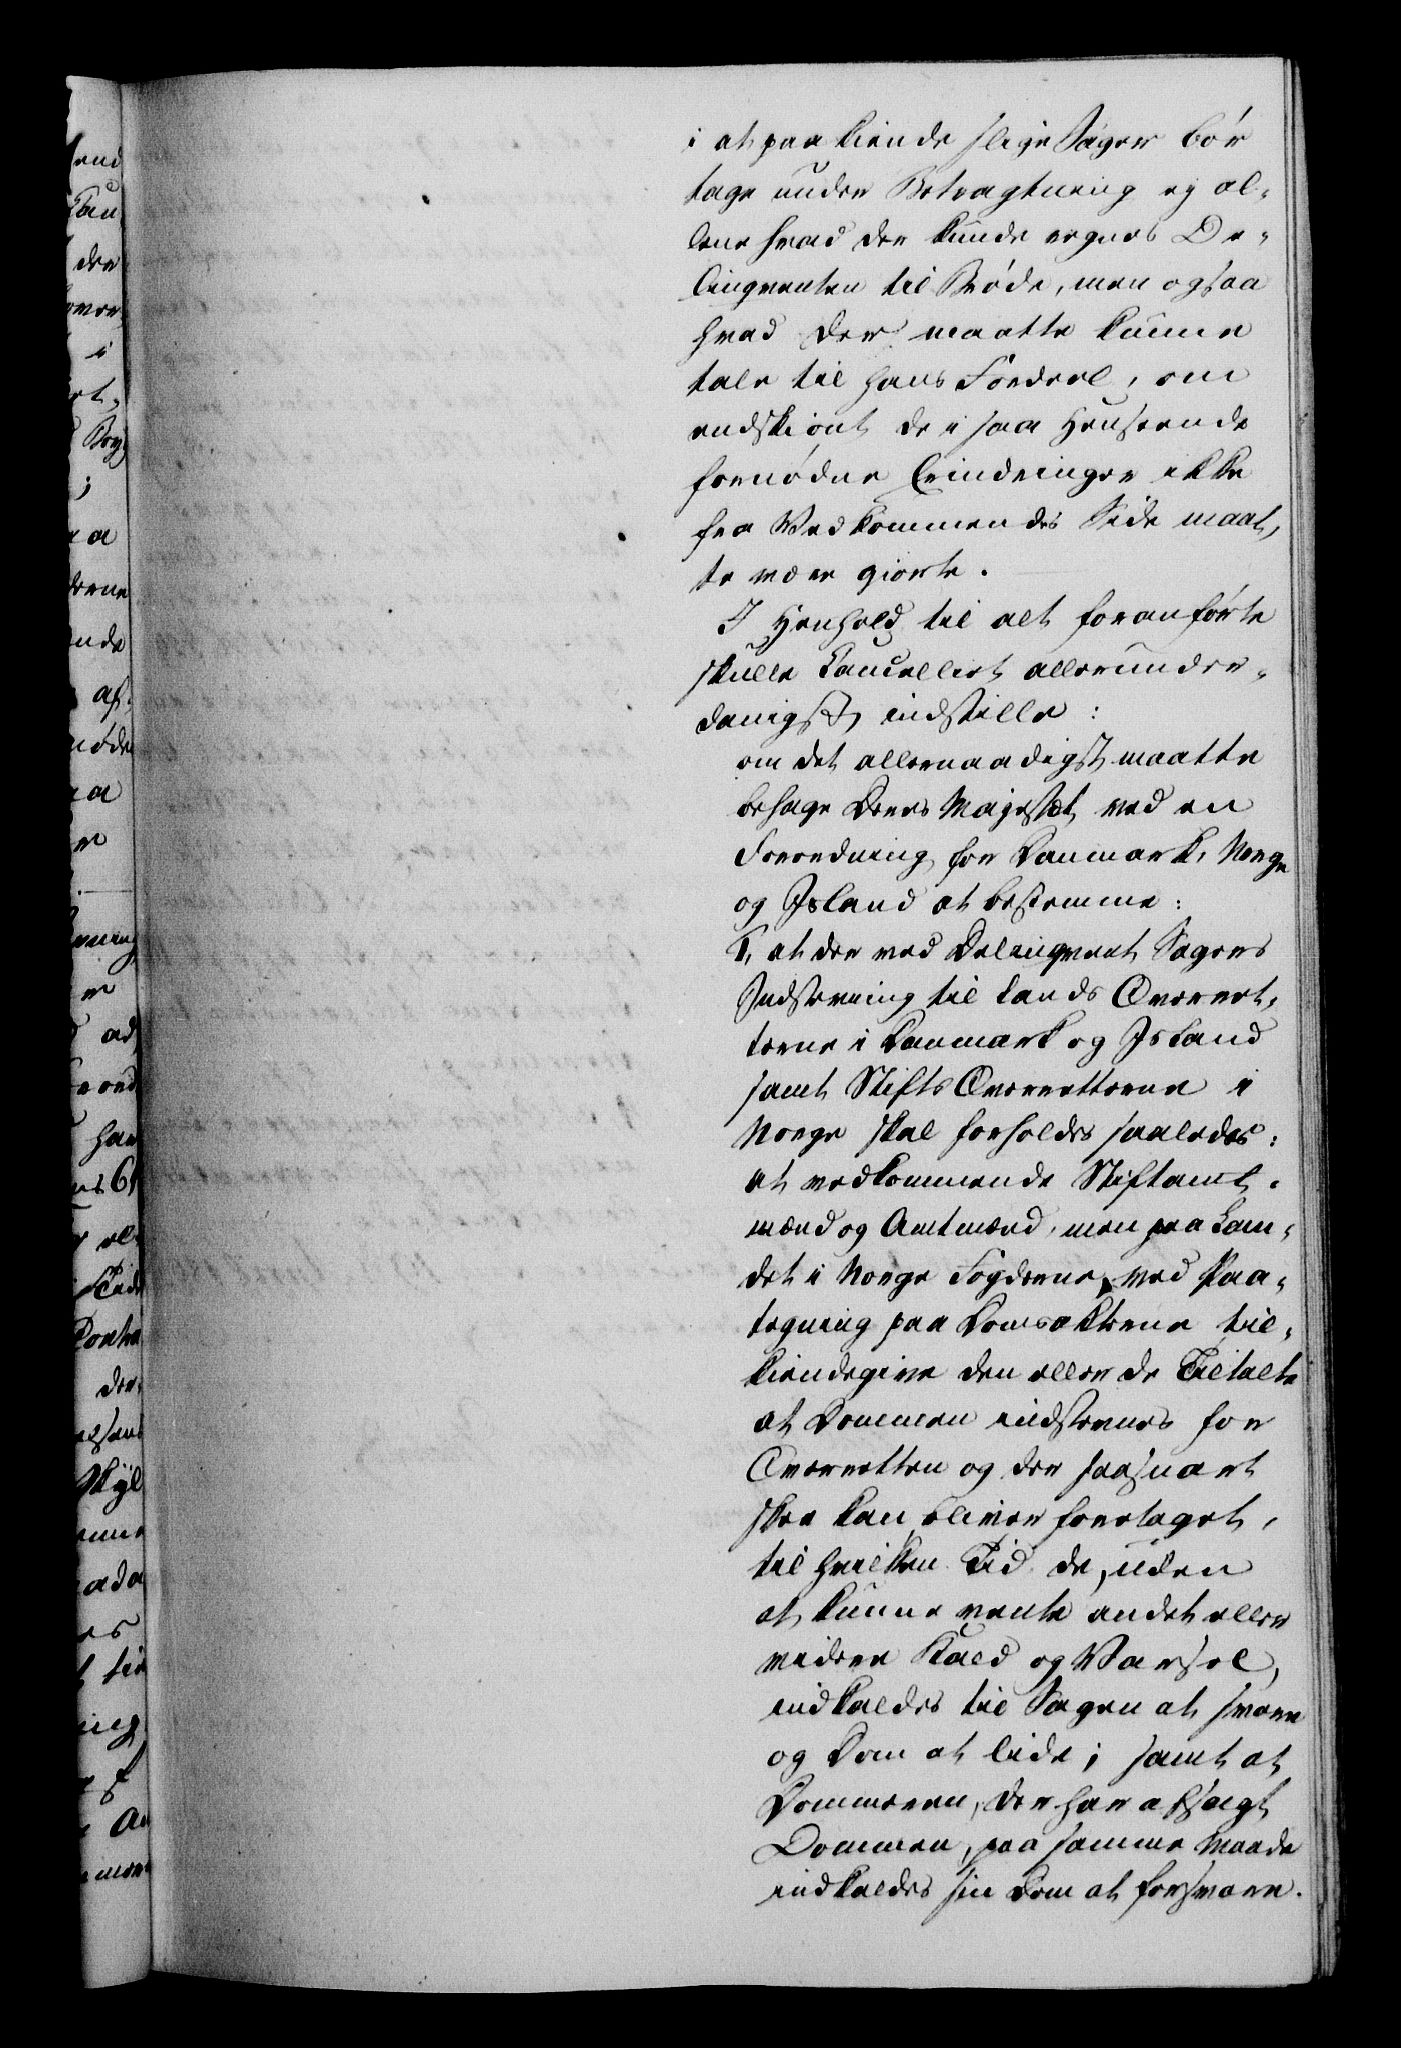 i at paakiende slige Sager bør
tage under Betragtning ej al-
lene hvad der kunde regnes De-
linqventen til Brøde, men ogsaa
hvad der maatte kunne
tale til hans Fordeel, om
endskiønt de i saa Henseende
fornødne Erindringer ikke
fra Vedkommendes Side maat-
te være giorte.
I Henhold til alt foranførte
skulle Cancelliet allerunder-
danigst indstille:
om det allernaadigst maatte
behage Deres Majestæt ved en
Forordning for Danmark, Norge
og Island at bestemme:
1, at der ved Delinqvent Sagers
Indstevning til Lands Overret-
terne i Danmark og Island
samt Stifts Overretterne i
Norge skal forholdes saaledes:
at vedkommende Stiftamt-
mænd og Amtmænd, men paa Lan-
det i Norge Fogderne, ved Paa-
tegning paa Domsakterne til-
kiendegive den eller de Tiltalte
at Dommen indstevnes for
Overretten og der saasnart
skee kan bliver foretaget,
til hvilken Tid de, uden
at kunne vente andet eller
videre Kald og Varsel,
indkaldes til Sagen at svare
og Dom at lide; samt at
Dommeren, der har afsagt
Dommen, paa samme Maade
indkaldes sin Dom at forsvare.